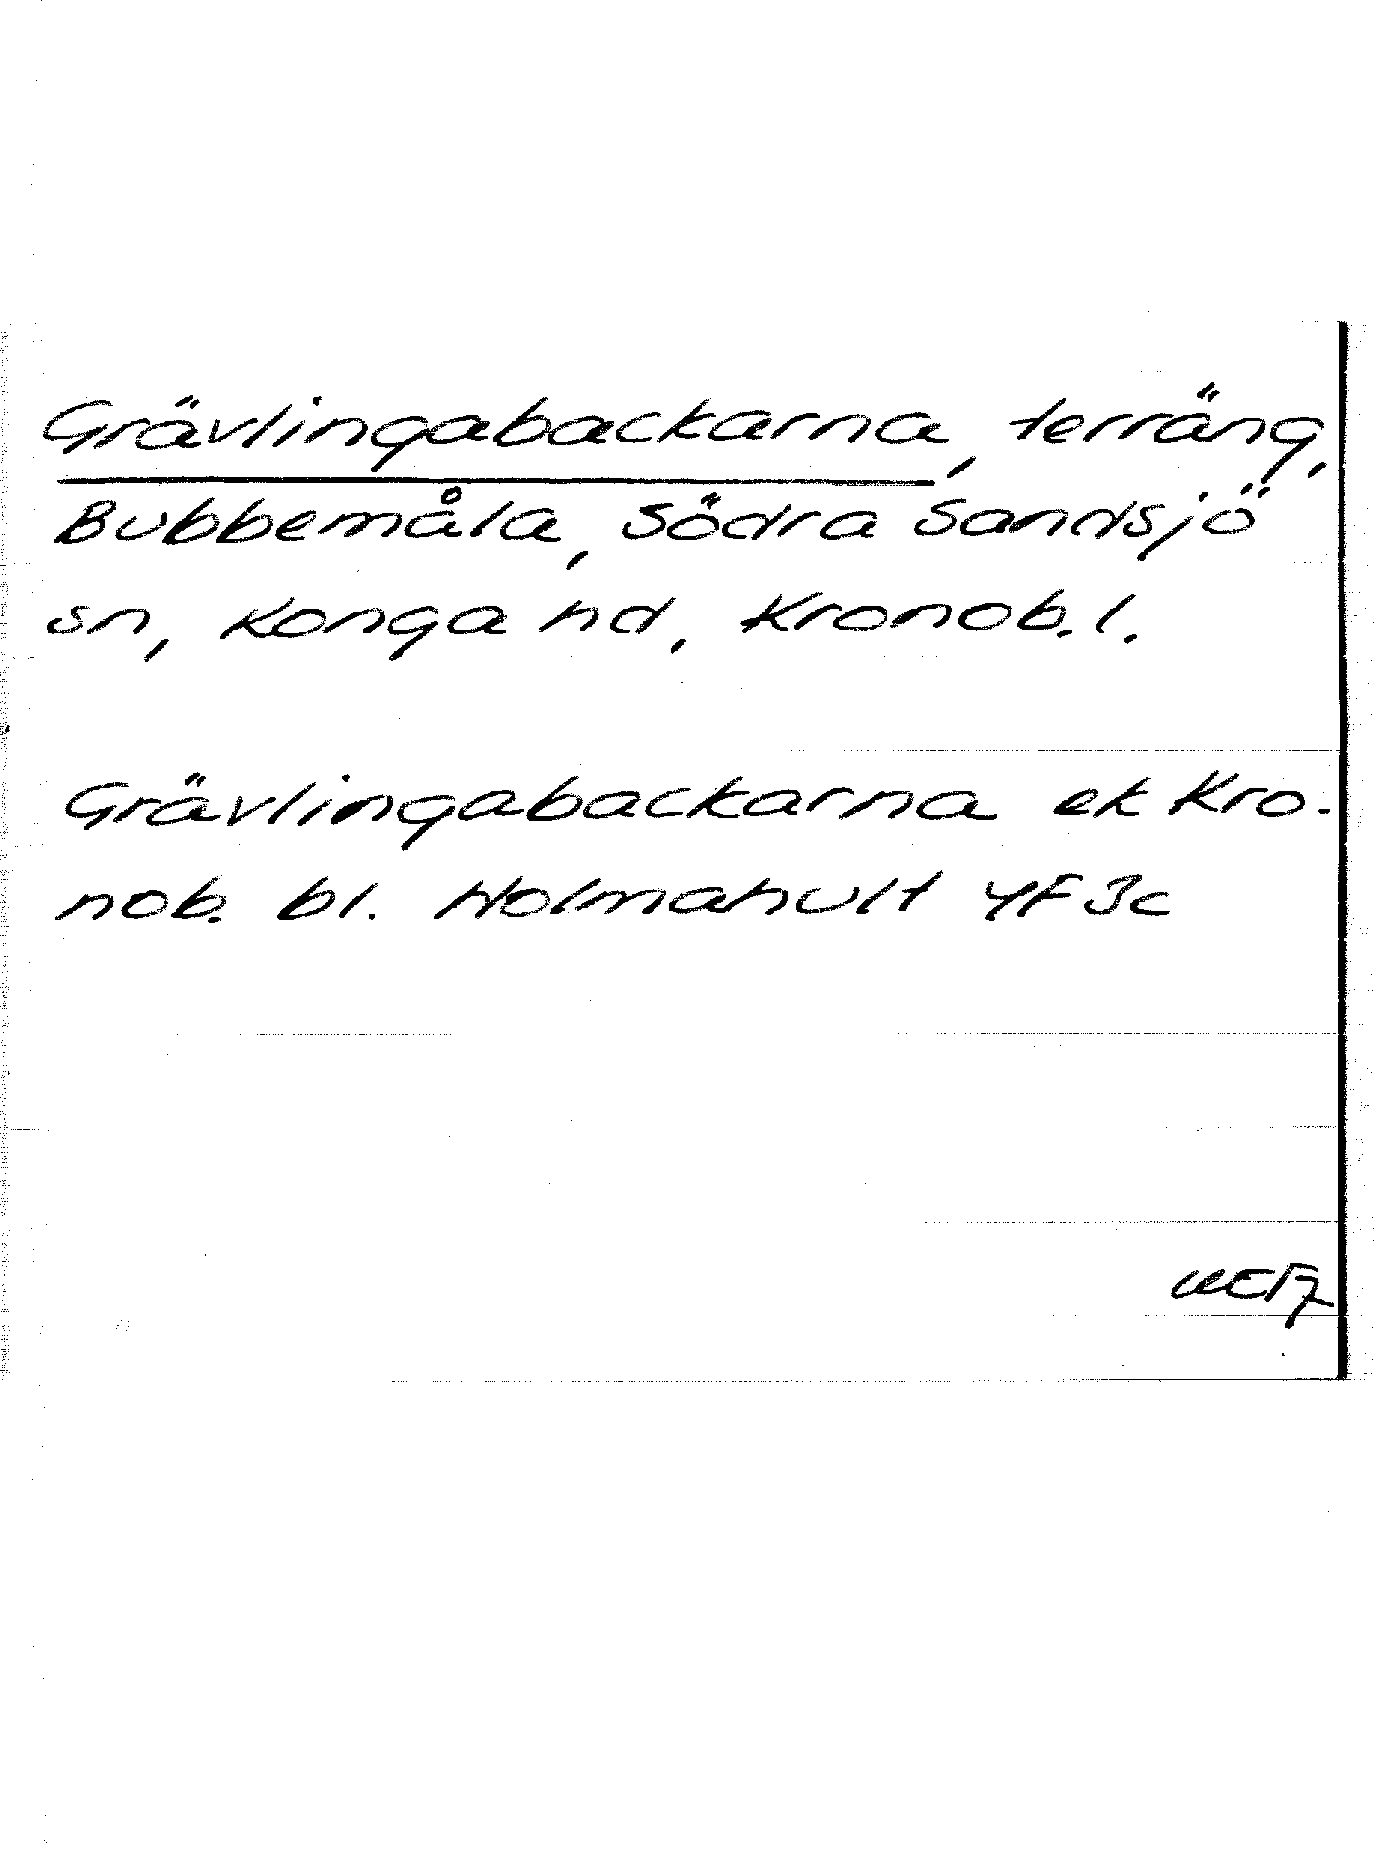 Grävlingabackarna, terräng,
Bubbemåla, Södra Sandsjö
sn, Konga hd, Kronob. l.
Grävlingabackarna ek Kro-
nob. bl. Holmahult 4F3c